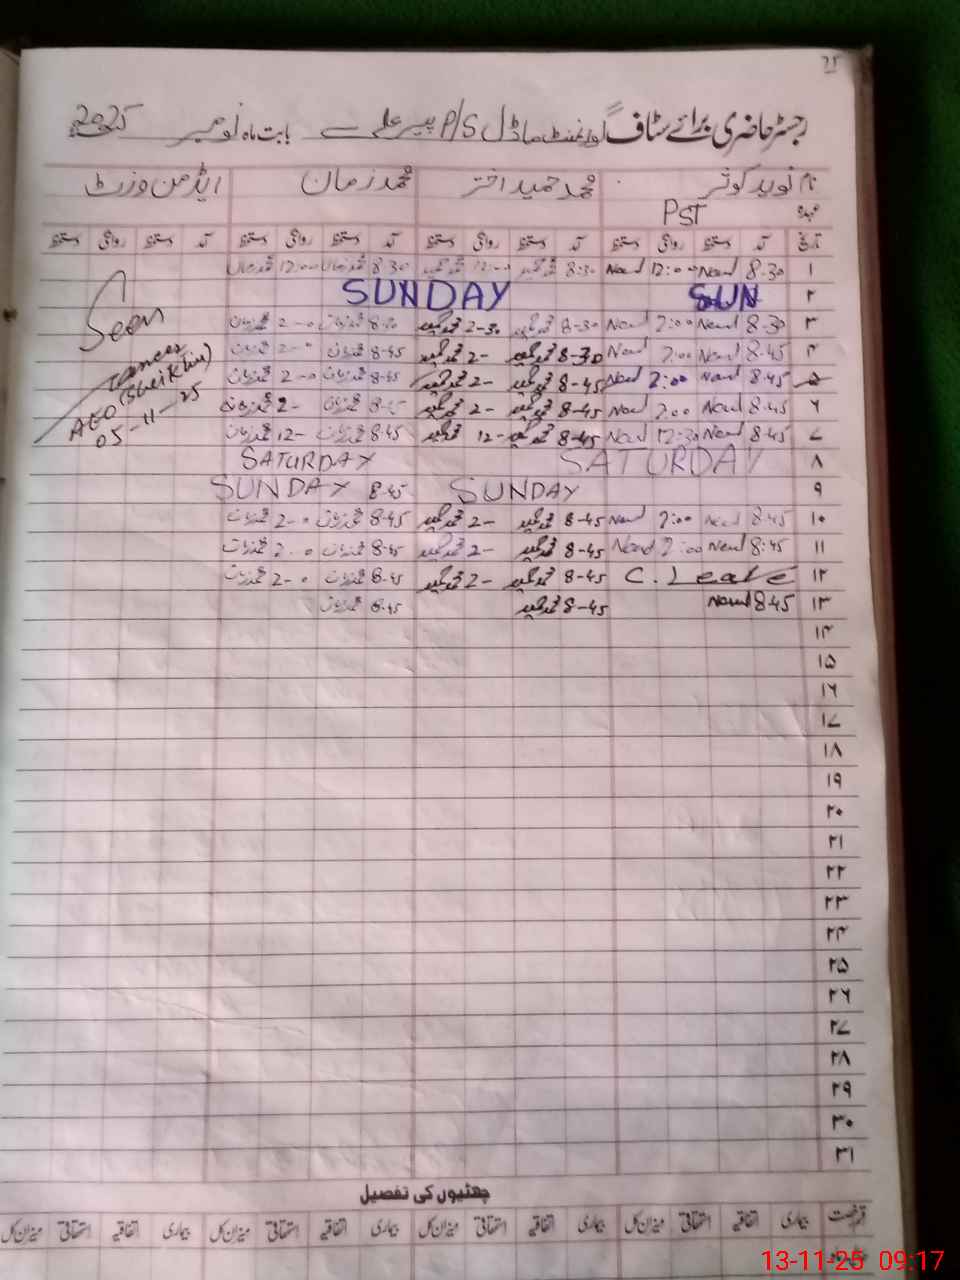 25
رجسٹر حاضری برائے سٹاف گورنمنٹ ماڈل P/S پیر علی بابت ماہ نومبر 2025
نام نوید کوثر محمد حمید اختر محمد زمان ایڈمن وزٹ
عہدہ PST
تاریخ آمد دستخط روانگی دستخط آمد دستخط روانگی دستخط آمد دستخط روانگی دستخط آمد دستخط روانگی دستخط
۱ 8.30 Naved 12:00 Naved 8:30 12:00 8.30 محمد زمان 12:00 محمد زمان
۲ SUN SUNDAY
۳ 8-30 Naved 2:00 Naved 8-30 2-30 محمد زمان 2-0 محمد زمان
۴ 8.45 Naved 2:00 Naved 8-30 2- 8-45 محمد زمان 2-0 محمد زمان
۵ 8.45 Naved 2:00 Naved 8-45 2- 8-45 محمد زمان 2-0 محمد زمان
۶ 8.45 Naved 2:00 Naved 8-45 2- 8-45 محمد زمان 2- محمد زمان
۷ 8.45 Naved 12:30 Naved 8-45 12- 8.45 محمد زمان 12- محمد زمان
Seen
AEO (Sheikhu)
05-11-25
۸ SATURDAY SATURDAY
۹ SUNDAY 8-45 SUNDAY
۱۰ 8.45 Naved 2:00 Naved 8-45 2- 8-45 محمد زمان 2-0 محمد زمان
۱۱ 8:45 Naved 2:00 Naved 8-45 2- 8-45 محمد زمان 2-0 محمد زمان
۱۲ C. Leave 8-45 2- 8-45 محمد زمان 2-0 محمد زمان
۱۳ 8.45 Naved 8-45 8.45 محمد زمان
۱۴
۱۵
۱۶
۱۷
۱۸
۱۹
۲۰
۲۱
۲۲
۲۳
۲۴
۲۵
۲۶
۲۷
۲۸
۲۹
۳۰
۳۱
چھٹیوں کی تفصیل
قسم رخصت بیماری اتفاقیہ استحقاقی میزان کل بیماری اتفاقیہ استحقاقی میزان کل بیماری اتفاقیہ استحقاقی میزان کل بیماری اتفاقیہ استحقاقی میزان کل
13-11-25 09:17